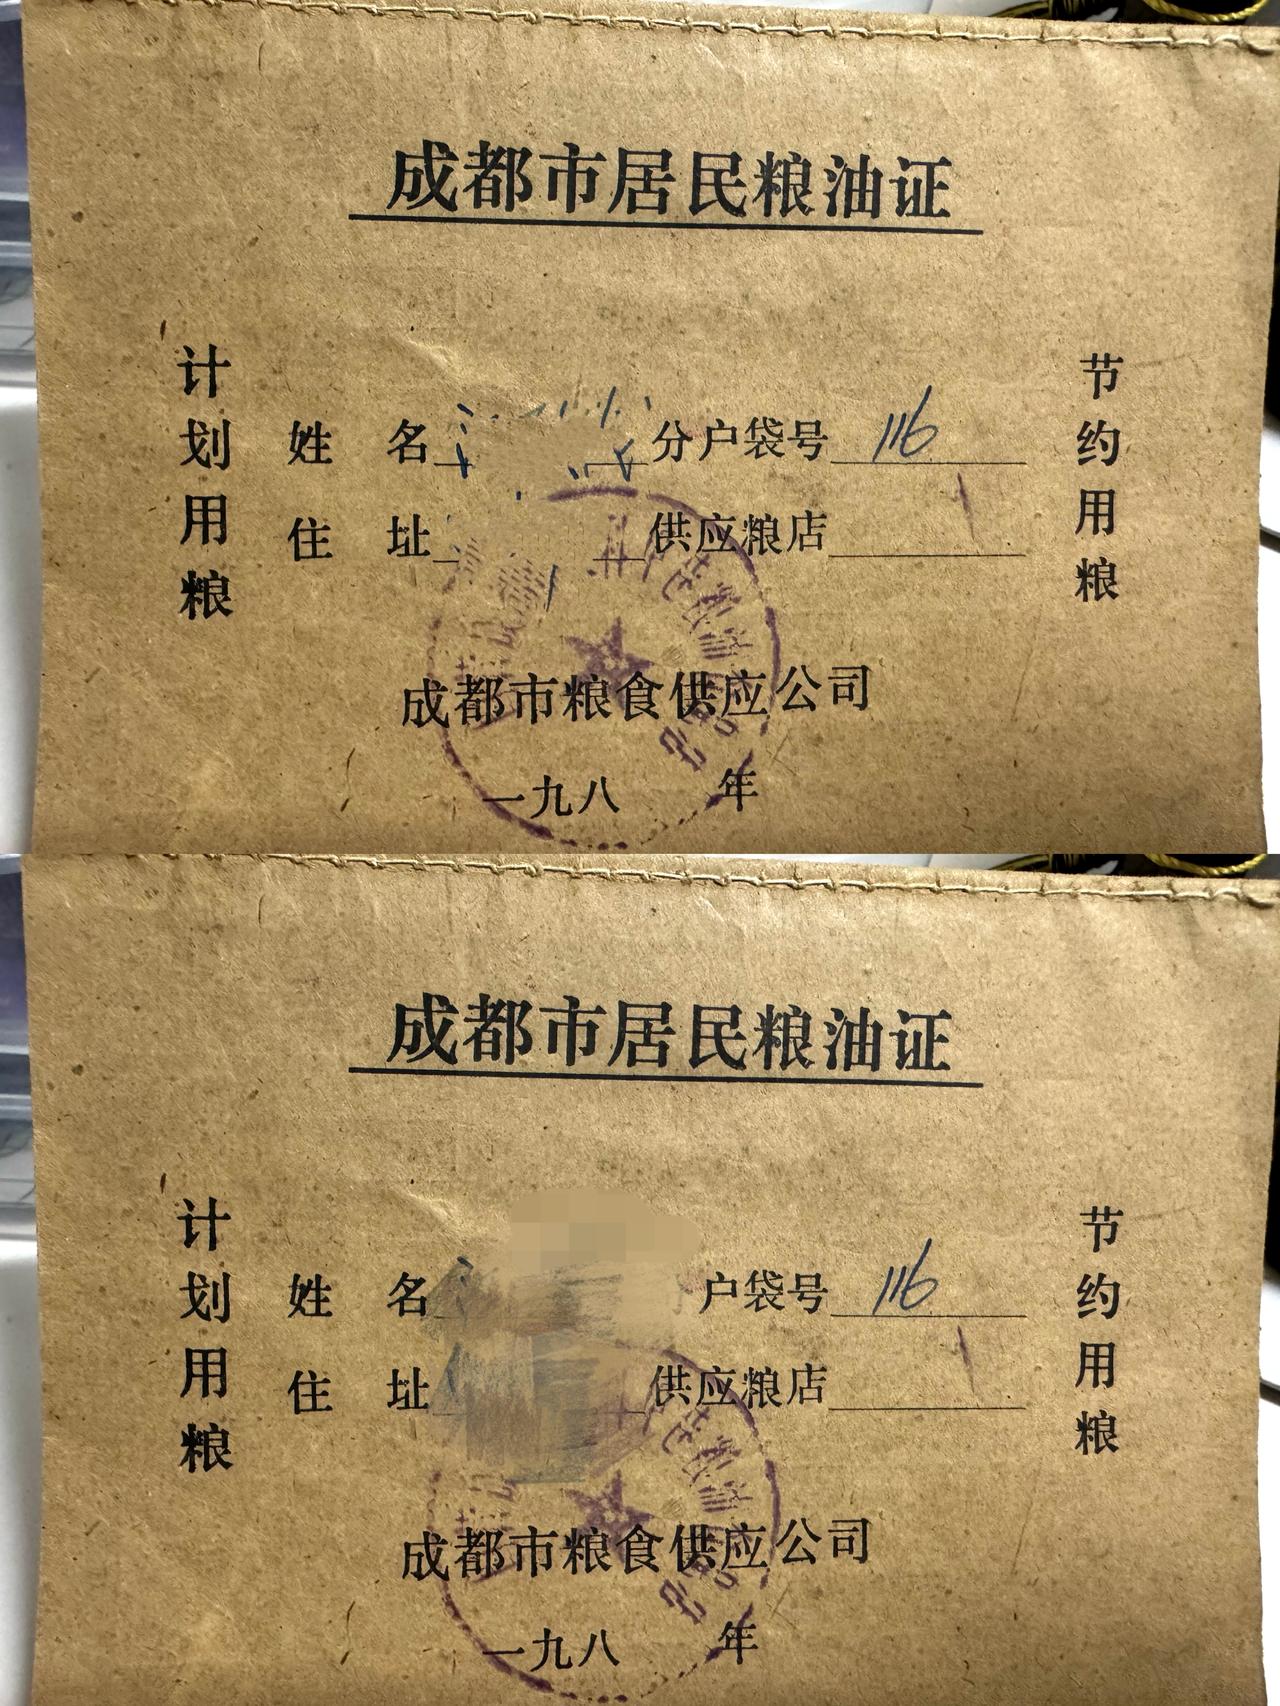 成都市居民粮油证
计划用粮
姓名 分户袋号 116
住址 供应粮店
节约用粮
成都市粮食供应公司
一九八 年
成都市居民粮油证
计划用粮
姓名 户袋号 116
住址 供应粮店
节约用粮
成都市粮食供应公司
一九八 年